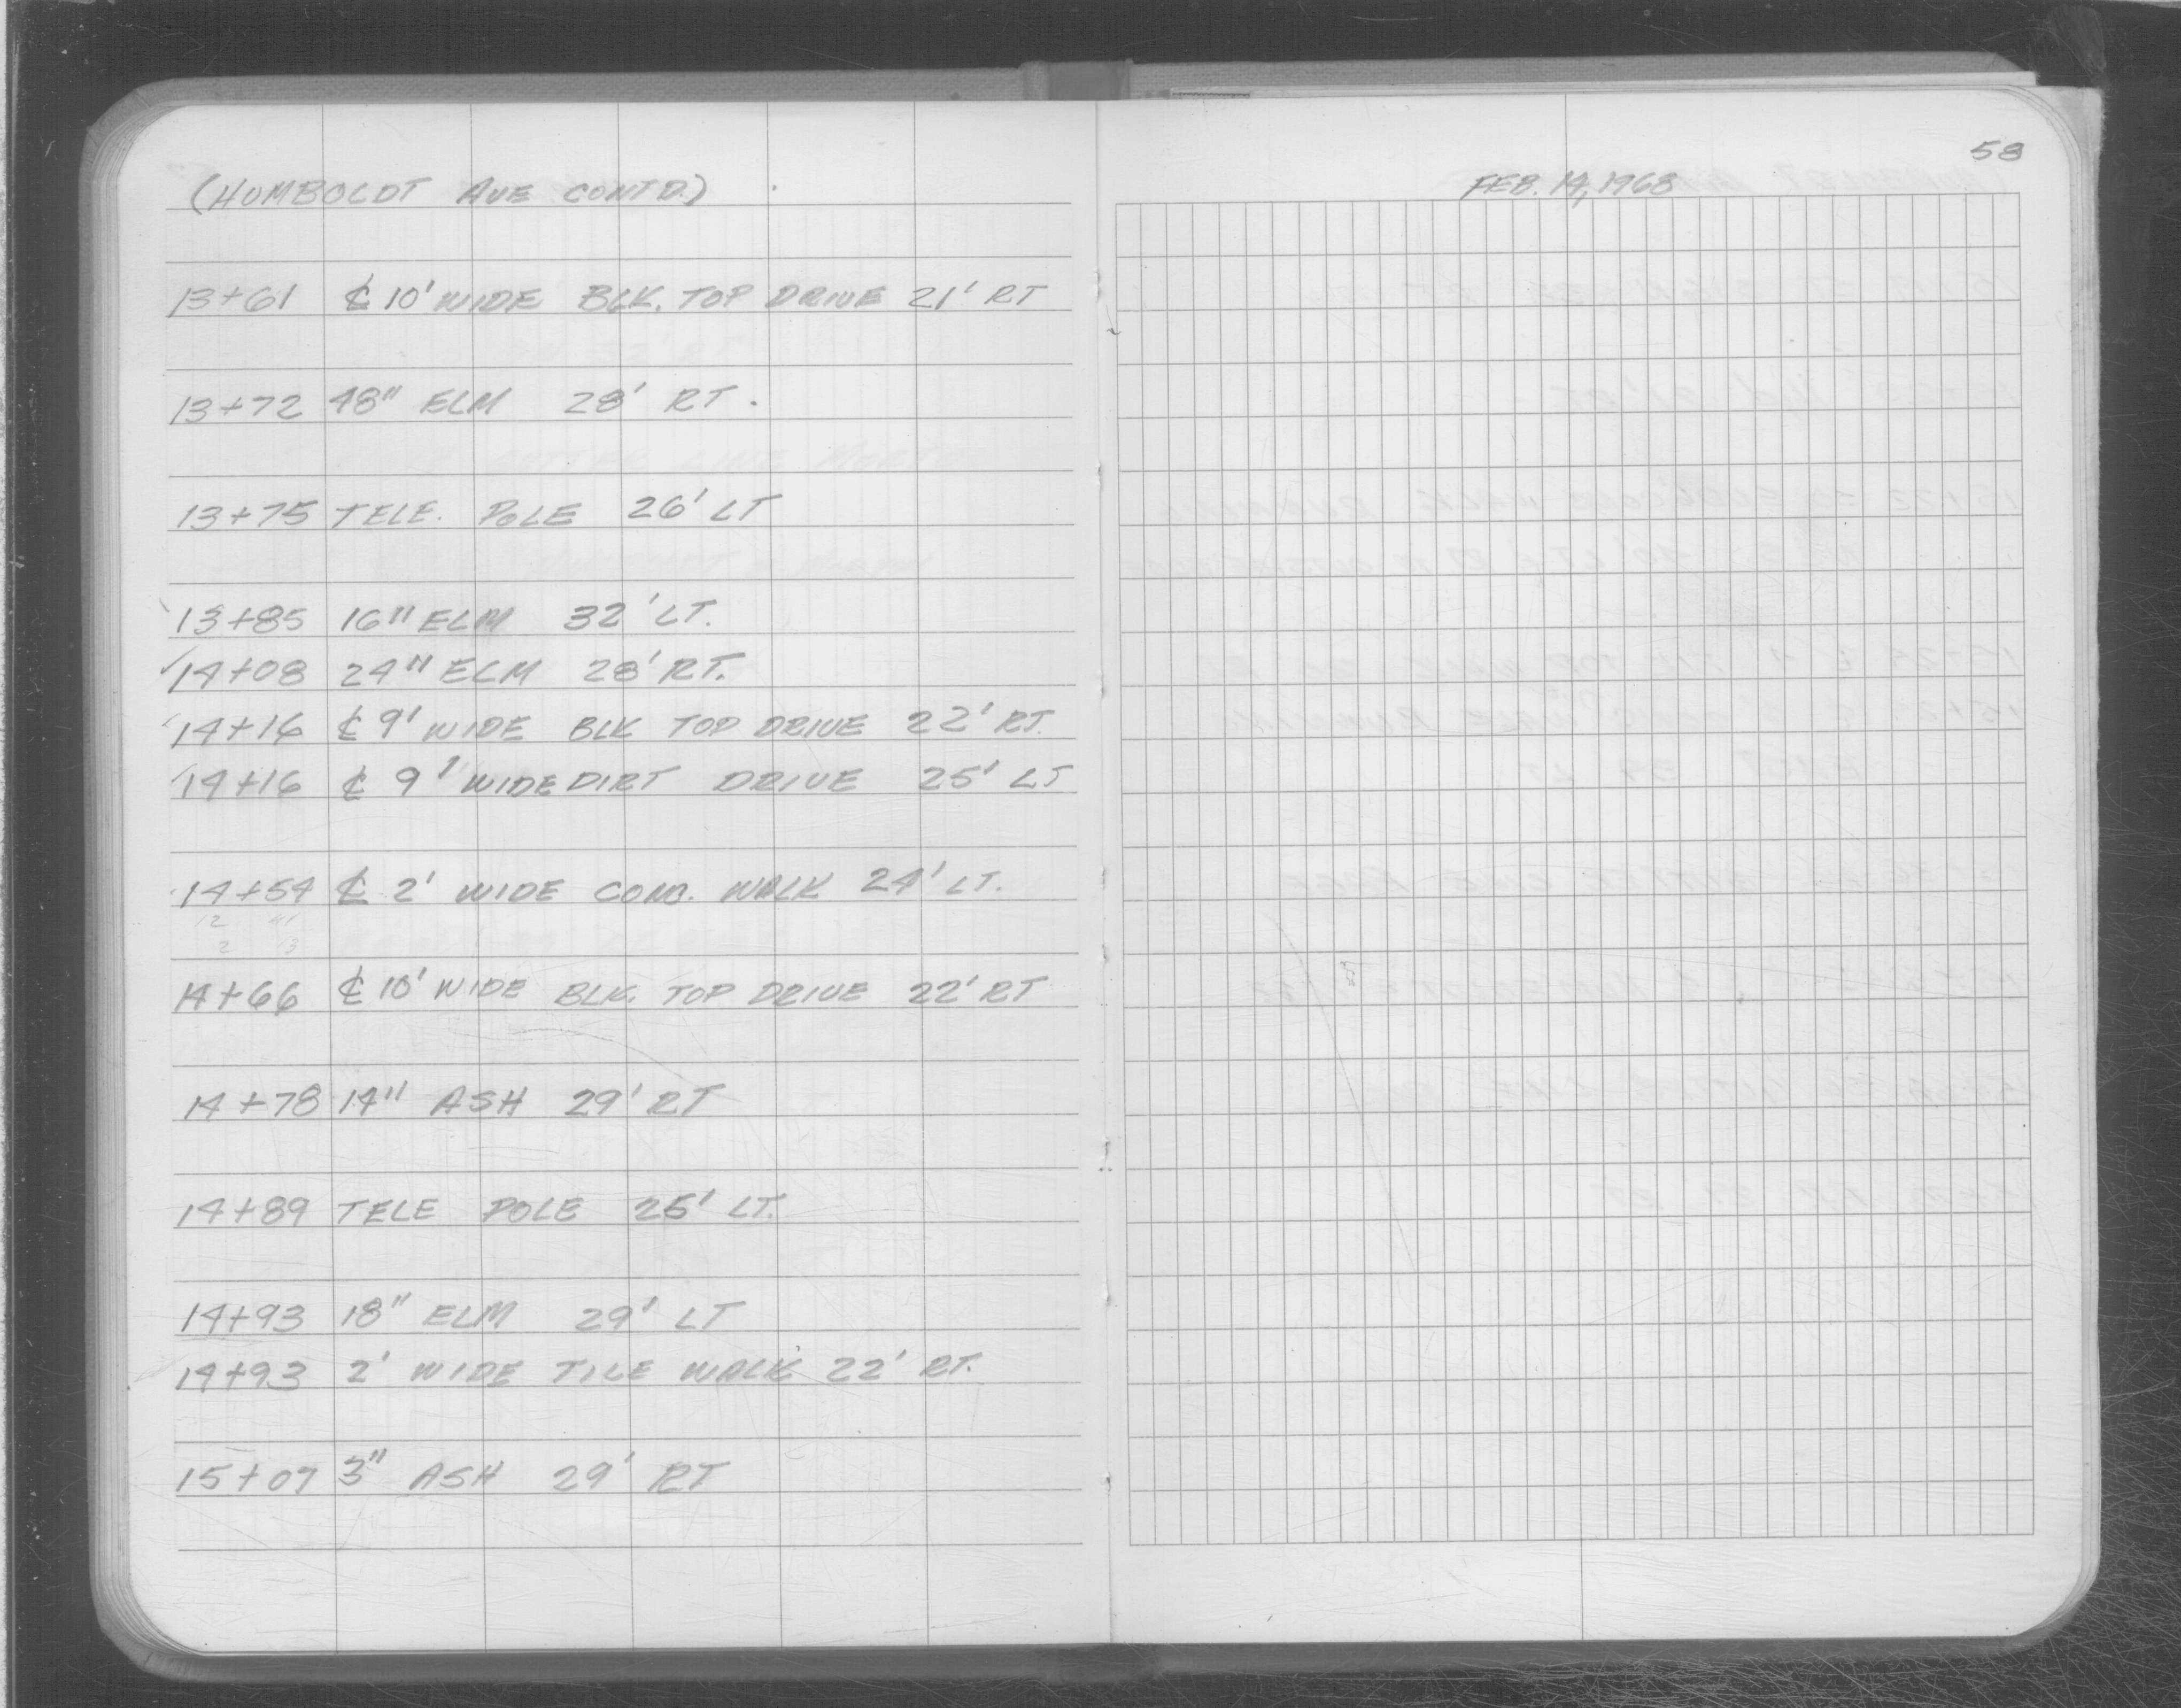 (HUMBOLDT AVE CONTD.)
13+61 ℄ 10' WIDE BLK. TOP DRIVE 21' RT
13+72 48" ELM 28' RT.
13+75 TELE. POLE 26' LT
13+85 16" ELM 32' LT.
14+08 24" ELM 28' RT.
14+16 ℄ 9' WIDE BLK TOP DRIVE 22' RT.
14+16 ℄ 9' WIDE DIRT DRIVE 25' LT
14+54 ℄ 2' WIDE CONC. WALK 24' LT.
12 41
2 13
14+66 ℄ 10' WIDE BLK. TOP DRIVE 22' RT
14+78 14" ASH 29' RT
14+89 TELE POLE 25' LT.
14+93 18" ELM 29' LT
14+93 2' WIDE TILE WALK 22' RT.
15+07 3" ASH 29' RT
58
FEB. 14, 1968